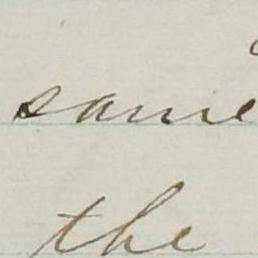 same
the